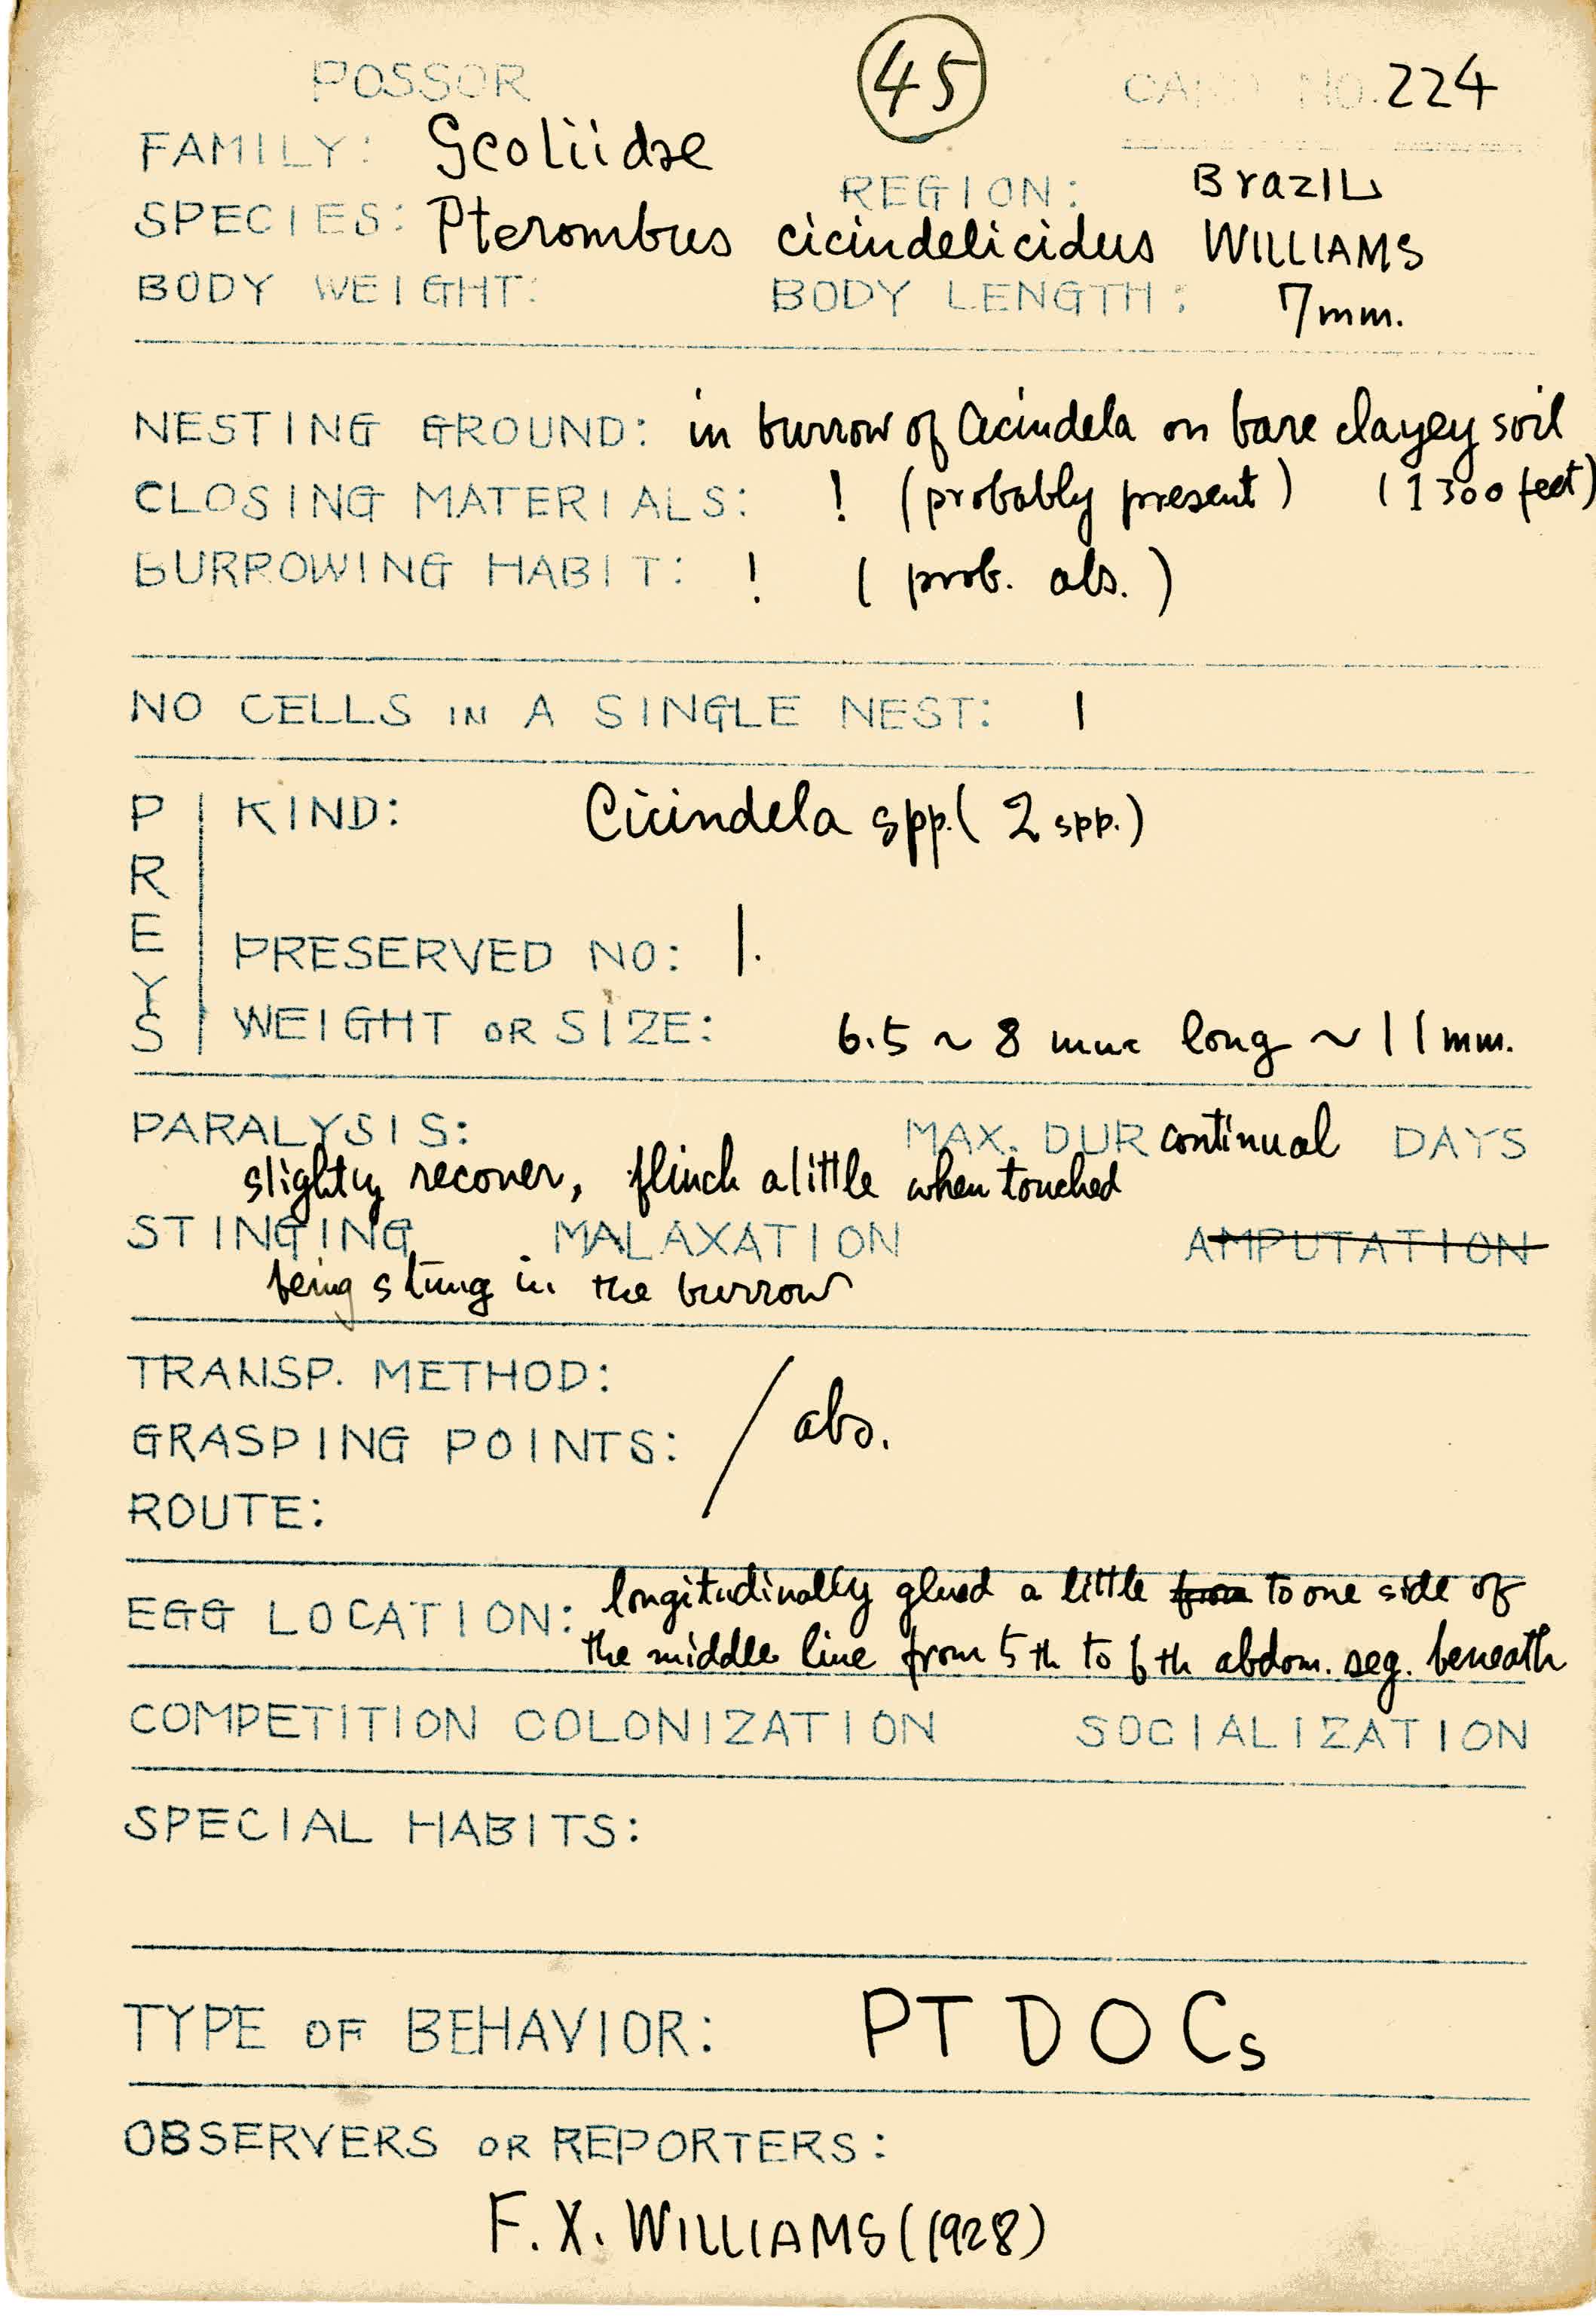 POSSOR 45 CARD NO. 224
FAMILY: Scoliidae
REGION: Brazil
SPECIES: Pterombrus cicindelicidus WILLIAMS
BODY WEIGHT: BODY LENGTH: 7mm.
NESTING GROUND: in burrow of Cicindela on bare clayey soil
CLOSING MATERIALS: ! (probably present) (1300 feet)
BURROWING HABIT: ! (prob. abs.)
NO CELLS IN A SINGLE NEST: 1
PREYS
KIND: Cicindela spp. (2 spp.)
PRESERVED NO: 1.
WEIGHT OR SIZE: 6.5 ~ 8 mm long ~ 11mm.
PARALYSIS: MAX. DUR continual DAYS
slightly recover, flinch a little when touched
STINGING . MALAXATION AMPUTATION
being stung in the burrow
TRANSP. METHOD:
GRASPING POINTS: / abs.
ROUTE:
EGG LOCATION: longitudinally glued a little from to one side of
the middle line from 5th to 6th abdom. seg. beneath
COMPETITION COLONIZATION SOCIALIZATION
SPECIAL HABITS:
TYPE OF BEHAVIOR: PTDOCs
OBSERVERS OR REPORTERS:
F. X. WILLIAMS (1928)